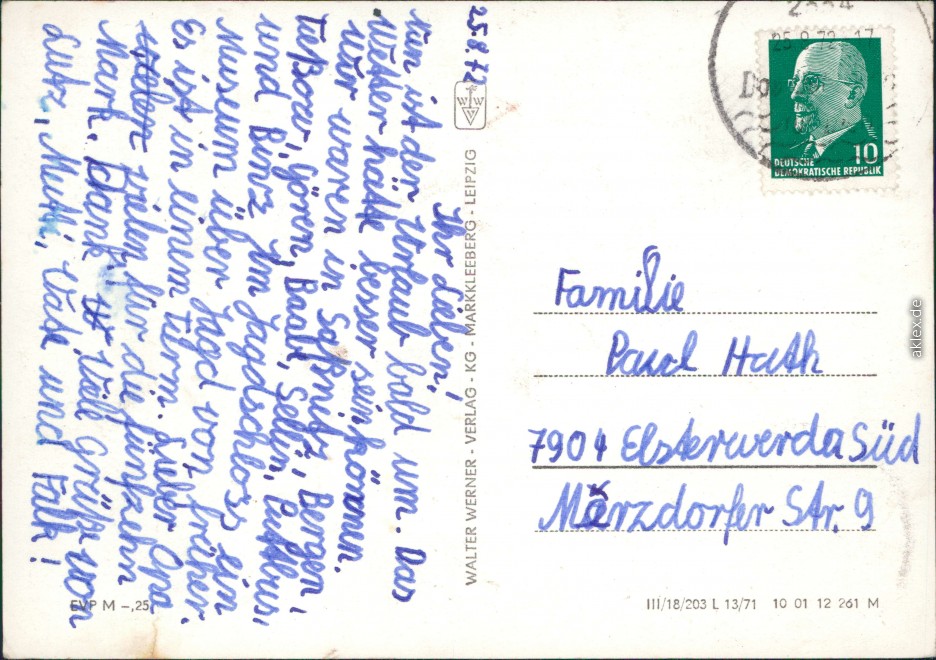 25.8.72
Ihr Lieben!
Nun ist der Urlaub bald um. Das
Wetter hätte besser sein können.
Wir waren in Saßnitz, Bergen,
Göhren, Baabe, Sellin, Putbus
und Binz. Im Jagdschloss ein
Museum über Jagd von früher.
Es ist in einem Turm. Lieber Opa
vielen für die fünfzehn
Mark. Dank. Viele Grüße von
Lutz, Mutti, Vati und Falk!
WALTER WERNER - VERLAG - KG - MARKKLEEBERG - LEIPZIG
W W V
2334
25.8.72-17
DEUTSCHE
DEMOKRATISCHE REPUBLIK
10
Familie
Paul Hath
7904 Elsterwerda Süd
Märzdorfer Str. 9
EVP M -,25
III/18/203 L 13/71 10 01 12 261 M
aklex.de